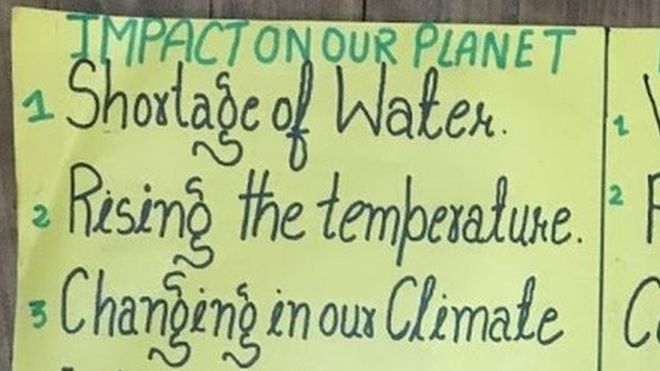 IMPACT ON OUR PLANET
1 Shortage of Water.
2 Rising the temperature.
3 Changing in our Climate
1
2